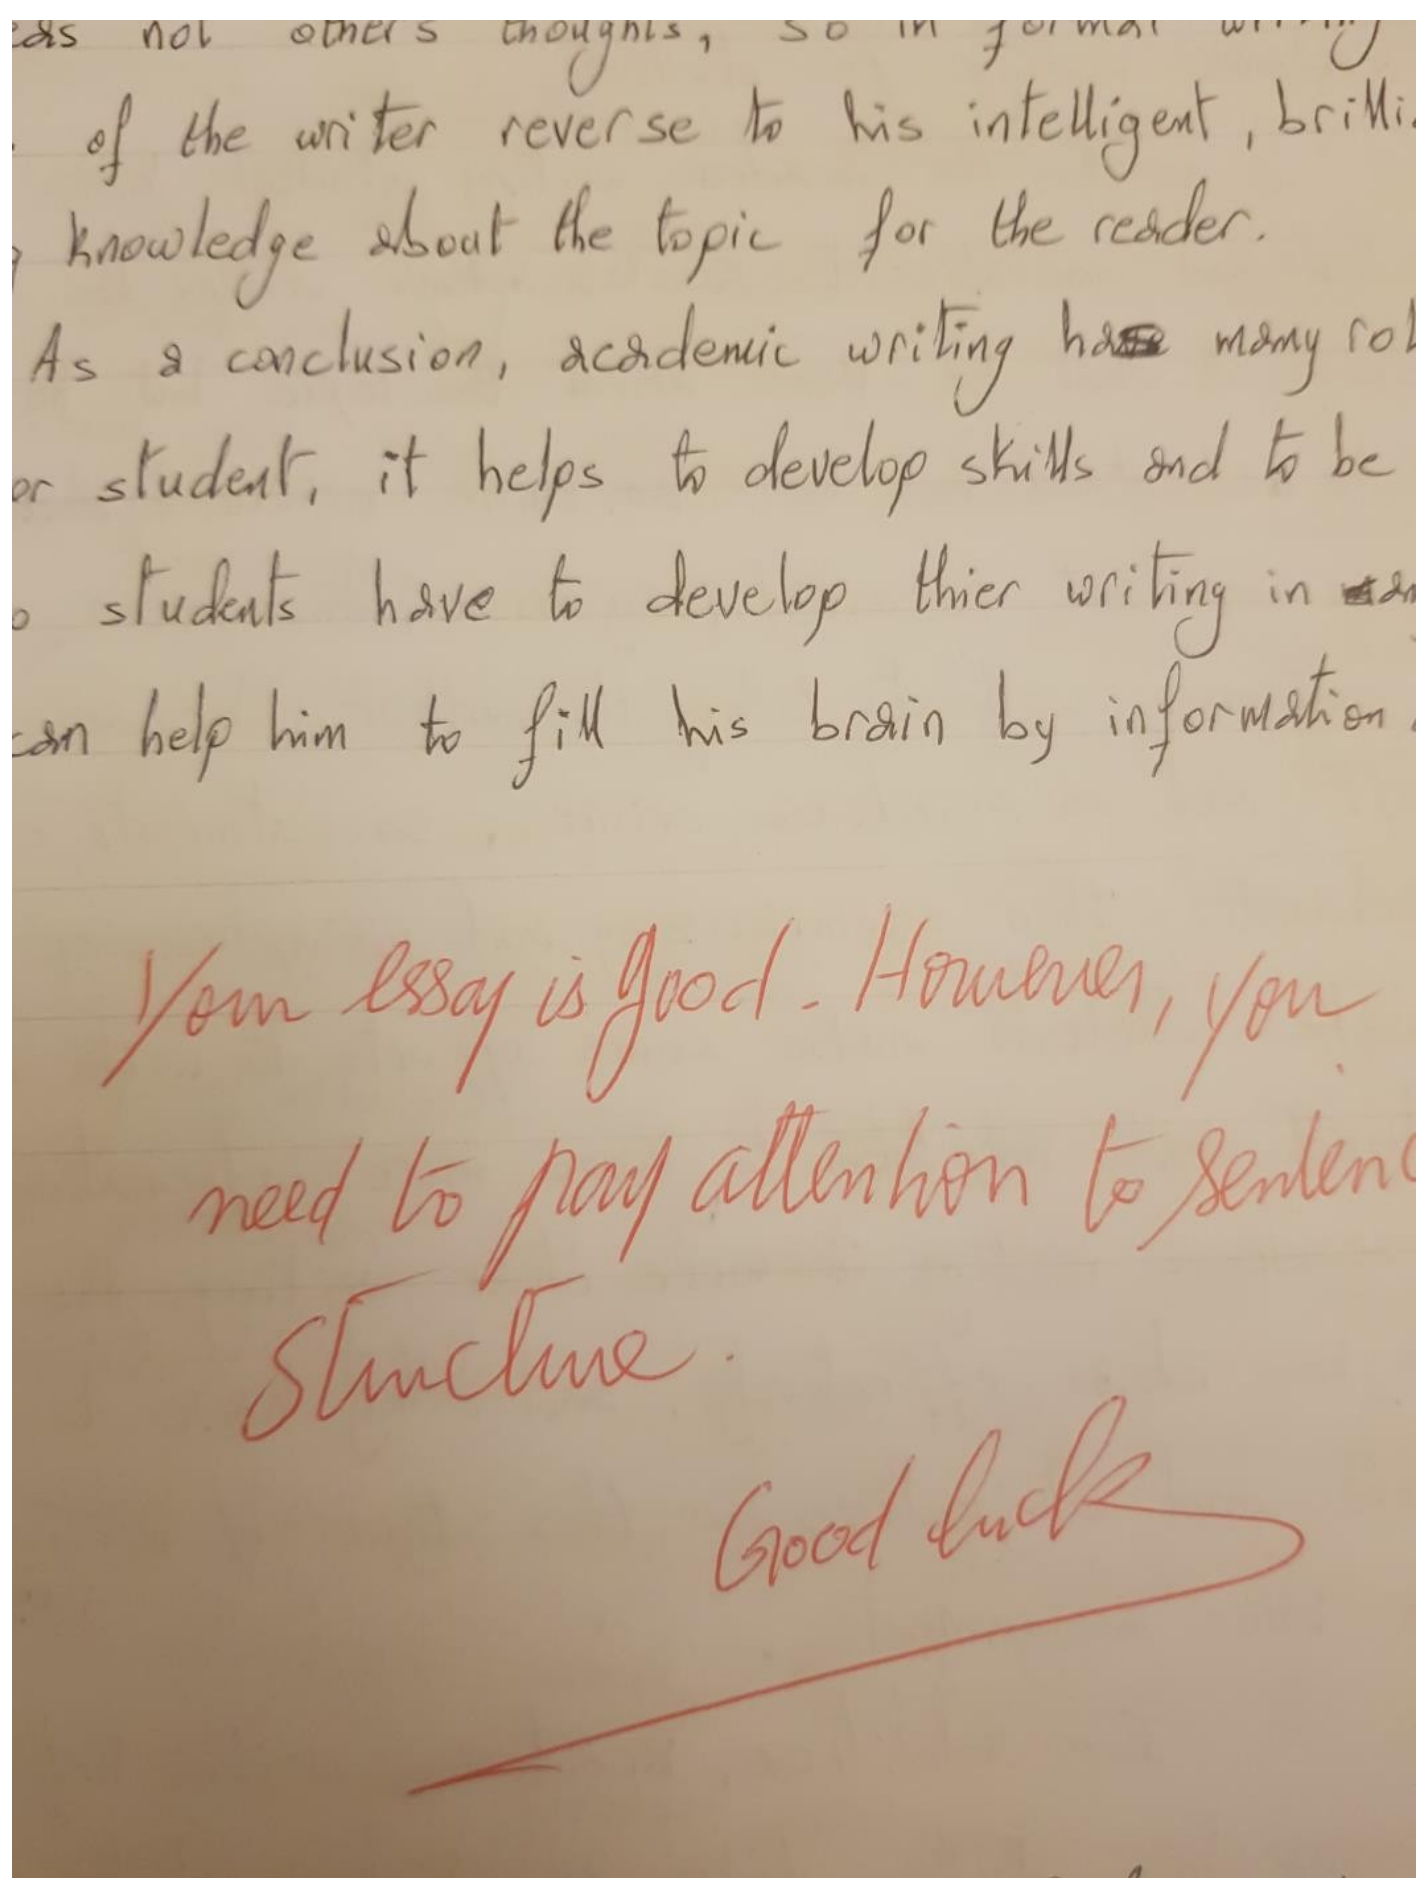 not others thoughts, so in formal writing
of the writer reverse to his intelligent, brilli
knowledge about the topic for the reader.
As a conclusion, academic writing has many rol
or student, it helps to develop skills and to be
students have to develop thier writing in
can help him to fill his brain by information.
Your essay is good. However, you
need to pay attention to sentenc
structure.
Good luck